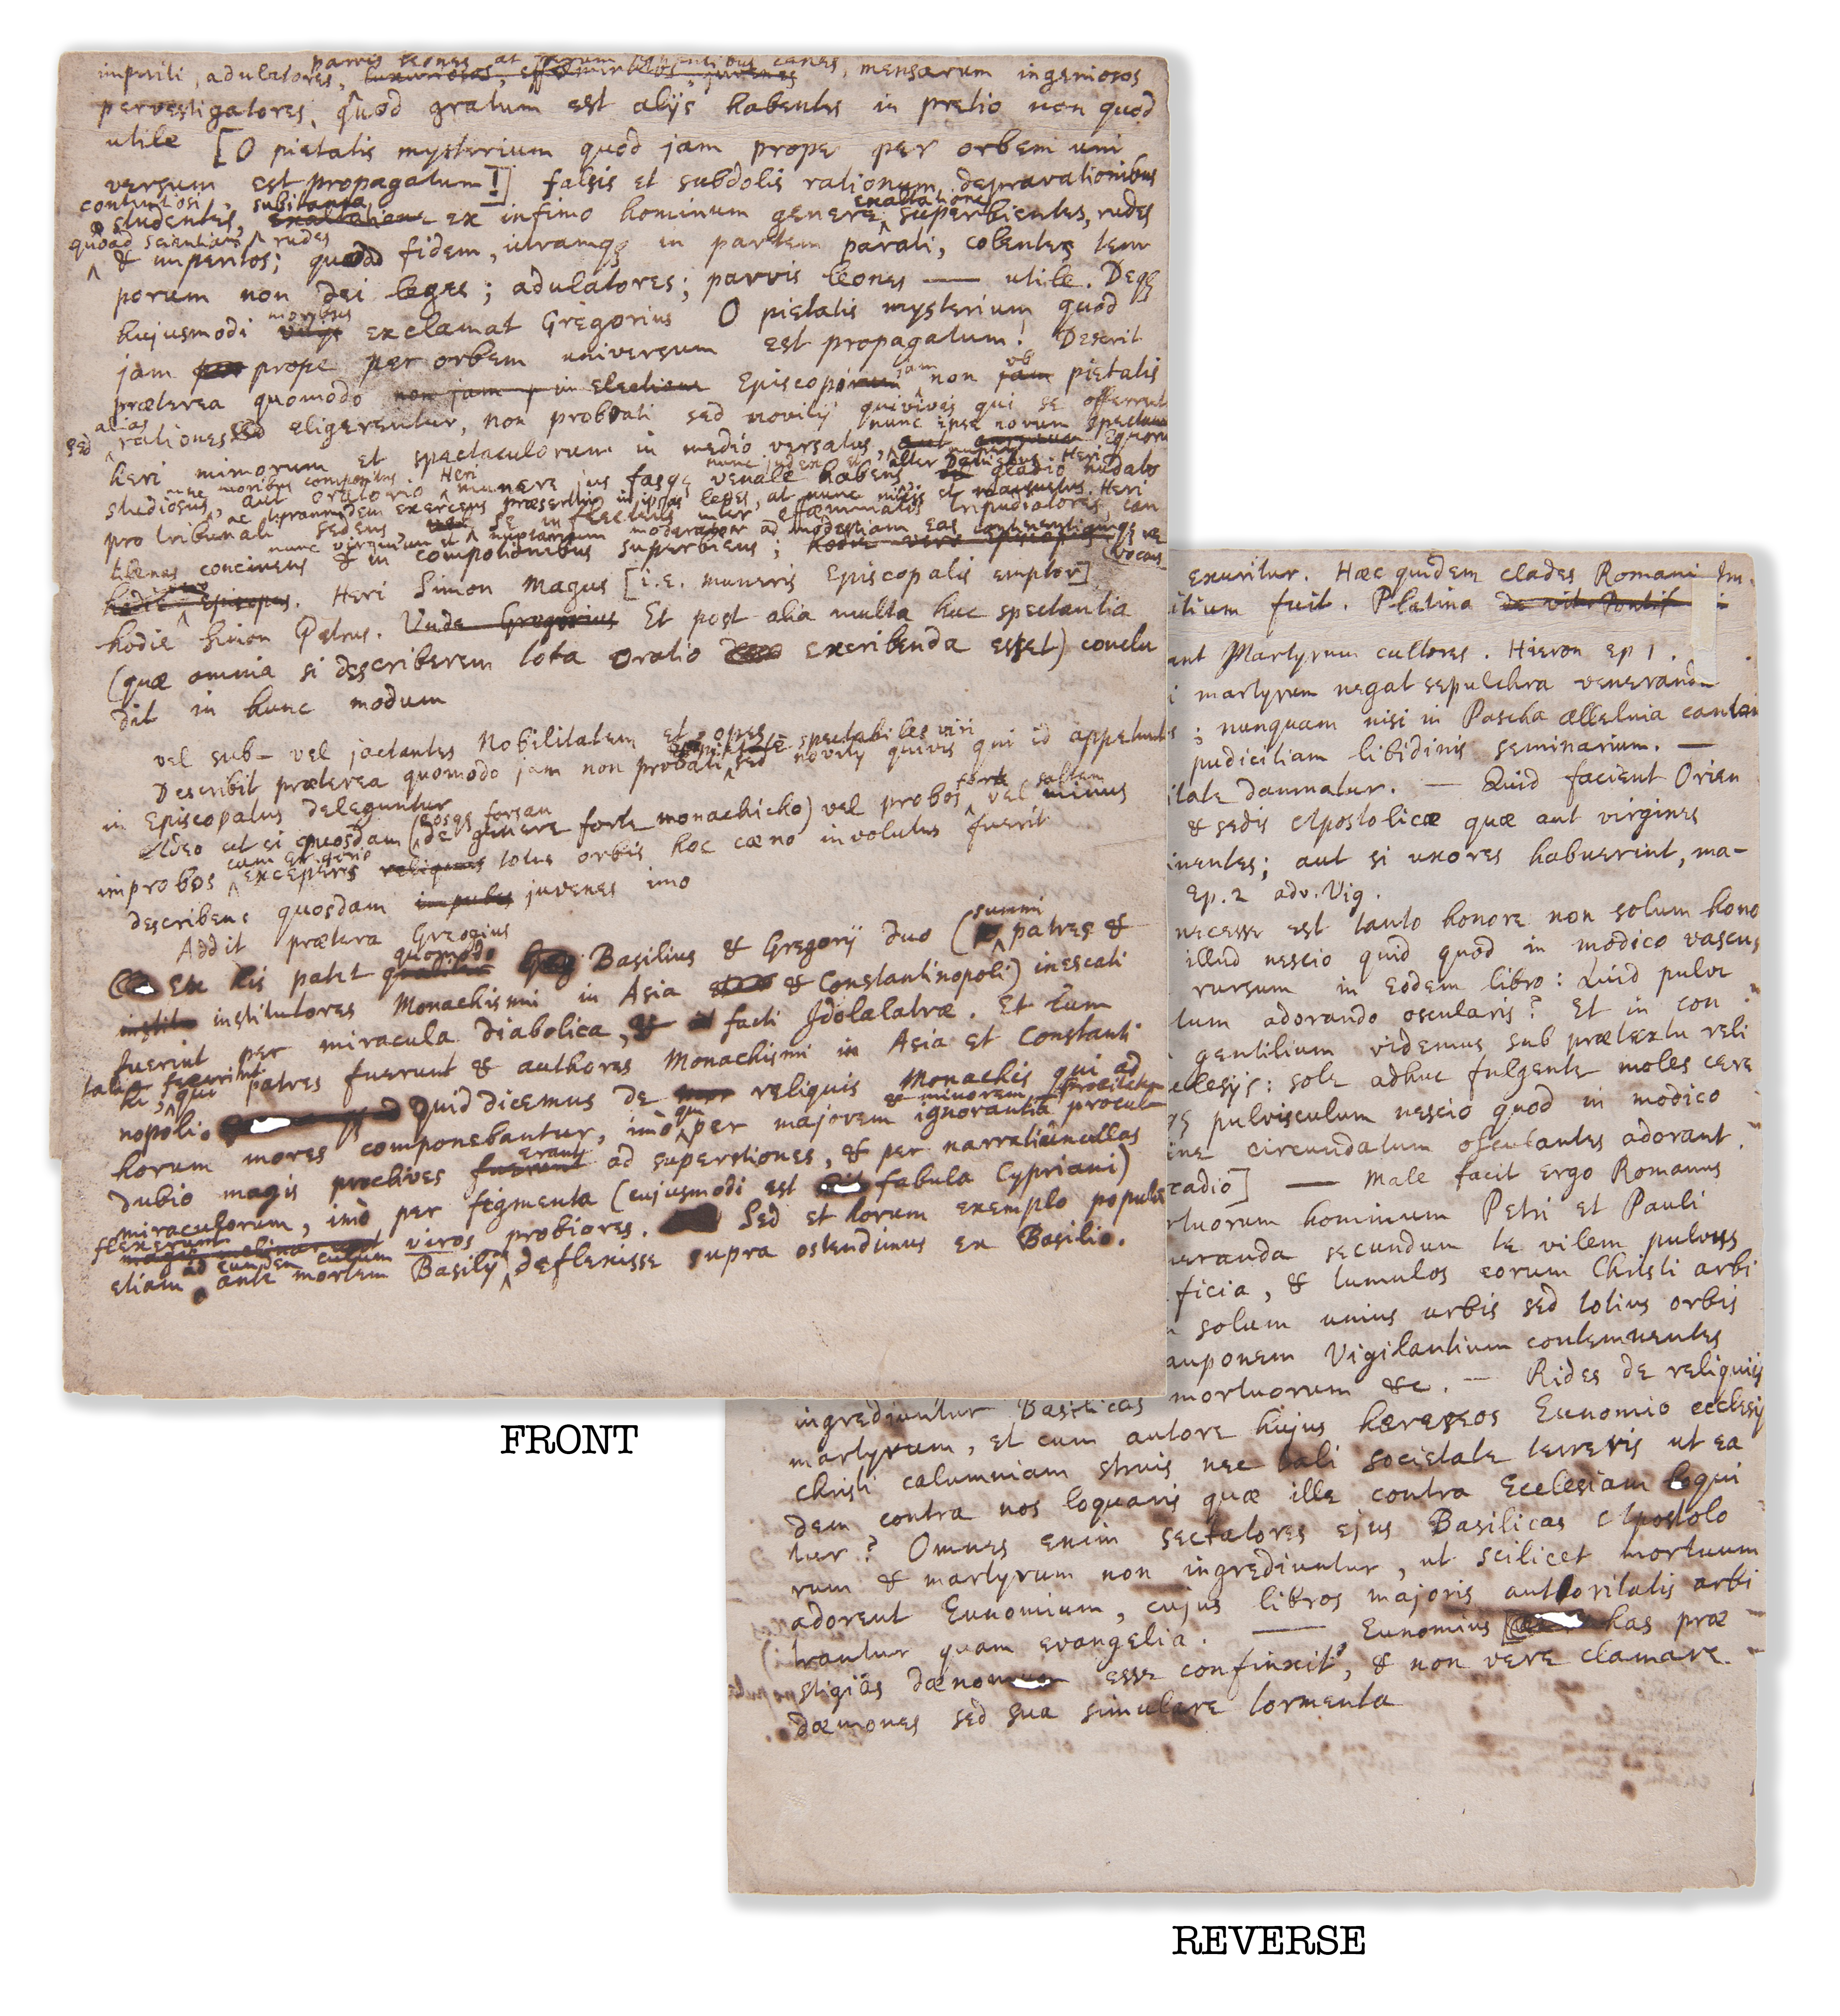 parvis leones at canes
impuri, adulatores, luxuriosos, effæminatos juvenes, mensarum ingeniosos
pervestigatores, quod gratum est alijs habentes in pretio non quod
utile [O pietatis mysterium quod jam prope per orbem uni
versum est propagatum!] falsis et subdolis rationum depravationibus
contentiosi, subitanea exaltatione
studentes, exaltatione ex infimo hominum genere superbientes, rudes
quoad scientiam rudes
& imperitos; quoad fidem, utramqꝫ in partem parati, colentes tem
porum non Dei leges; adulatores; parvis leones —— utile. Deqꝫ
moribus
hujusmodi exclamat Gregorius O pietatis mysterium quod
jam prope per orbem universum est propagatum! Descri̇t
jam ob
præterea quomodo non jam in electione Episcoporum non jam pietatis
sed alias
rationes sed eligerentur, non probati sed novitij quivis qui se offerrent
nunc ipse novum spectaculum
heri mimorum et spectaculorum in medio versatus, equorum
studiosus, aut oratorio munere jus fasqꝫ venale habens gladio nudato
pro tribunali sedens se inflectens inter effæminatos tripudiatores, can
tilenas concinens & in compotationibus superbiens; hodie vero Episcopus
hodie Episcopus. Heri Simon Magus [i.e. muneris Episcopalis emptor]
hodie Simon Petrus. Unde Gregorius Et post alia multa huc spectantia
(quæ omnia si describerem tota Oratio exscribenda esset) conclu
dit in hunc modum
vel sub– vel jactantes Nobilitatem et opes
spectabiles viri
Describit præterea quomodo jam non probati sed novitij quivis qui id appetunt
in Episcopatus deleguntur
eosqꝫ forsan forte saltem
Adeo ut si quosdam (de genere forte monachicho) vel probos vel minus
cum Gregorio
improbos exceperis reliquus totus orbis hoc cæno involutus fuerit
describens quosdam impubes juvenes imo
Addit prætera Gregius
quomodo summi
Ex his patet qualiter Basilius & Gregorij duo (patres &
instit institutores Monachismi in Asia & Constantinopoli) inescati
fuerint per miracula diabolica, & facti Idolalatræ. Et cum
tales fuerint
hi, qui patres fuerunt & authores Monachismi in Asia et Constanti
nopoli quid dicemus de reliquis Monachis qui ad
qui & minorem
horum mores componebantur, imò per majorem ignorantia procul
erant
dubio magis proclives fuerunt ad superstiones, & per narratiunculas
miraculorum, imò per figmenta (cujusmodi est fabula Cypriani)
flexerunt viros probiores. Sed et horum exemplo populū
ad eundem cultum
etiam ante mortem Basilij deflexisse supra ostendimus ex Basilio.
FRONT
exuritur. Hæc quidem clades Romani Im
itium fuit. Platina de vit. Pontif
ant Martyrum cultores. Hieron ep 1.
martyrum negat sepulchra veneranda
; nunquam nisi in Pascha allelluia cantan
pudicitiam libidinis seminarium. —
itate damnatur. — Quid facient Orien
& sedis Apostolicæ quæ aut virgines
inentes; aut si uxores habuerint, ma–
Ep. 2 adv. Vig.
necesse est tanto honore non solum hono
illud nescio quid quod in modico vascu
rursum in eodem libro: Quid pulve
tum adorando oscularis? Et in con
gentilium videmus sub prætextu reli
clesijs: sole adhuc fulgente moles cere
qꝫ pulvisculum nescio quod in modico
ine circundatum osculantes adorant
cadio] —— Male facit ergo Romanus
rtuorum hominum Petri et Pauli
neranda secundum te vilem pulvis
ficia, & tumulos eorum Christi arbi
solum unius urbis sed totius orbis
auponem Vigilantium contemnentes
ingrediuntur Basilicas mortuorum &c. — Rides de reliquijs
martyrum, et cum autore hujus hæreseos Eunomio ecclesijs
Christi calumniam struis nec tali societate terreris ut ea
dem contra nos loquaris quæ ille contra Ecclesiam loqui
tur? Omnes enim sectatores ejus Basilicas Apostolo
rum & martyrum non ingrediuntur, ut scilicet mortuum
adorent Eunomium, cujus libros majoris authoritatis arbi
trantur quam evangelia. —— Eunomius has præ
stigias dæmonum esse confinxit, & non vere clamare
dæmones sed sua simulare tormenta
REVERSE